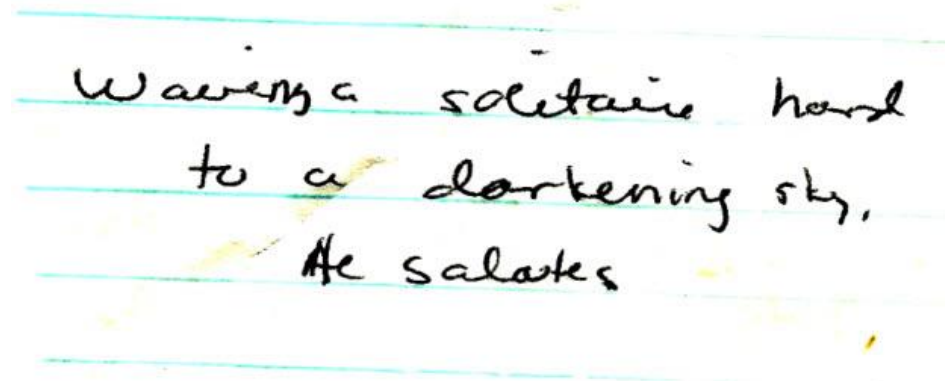 Waving a solitaire hand
to a darkening sky,
He salutes